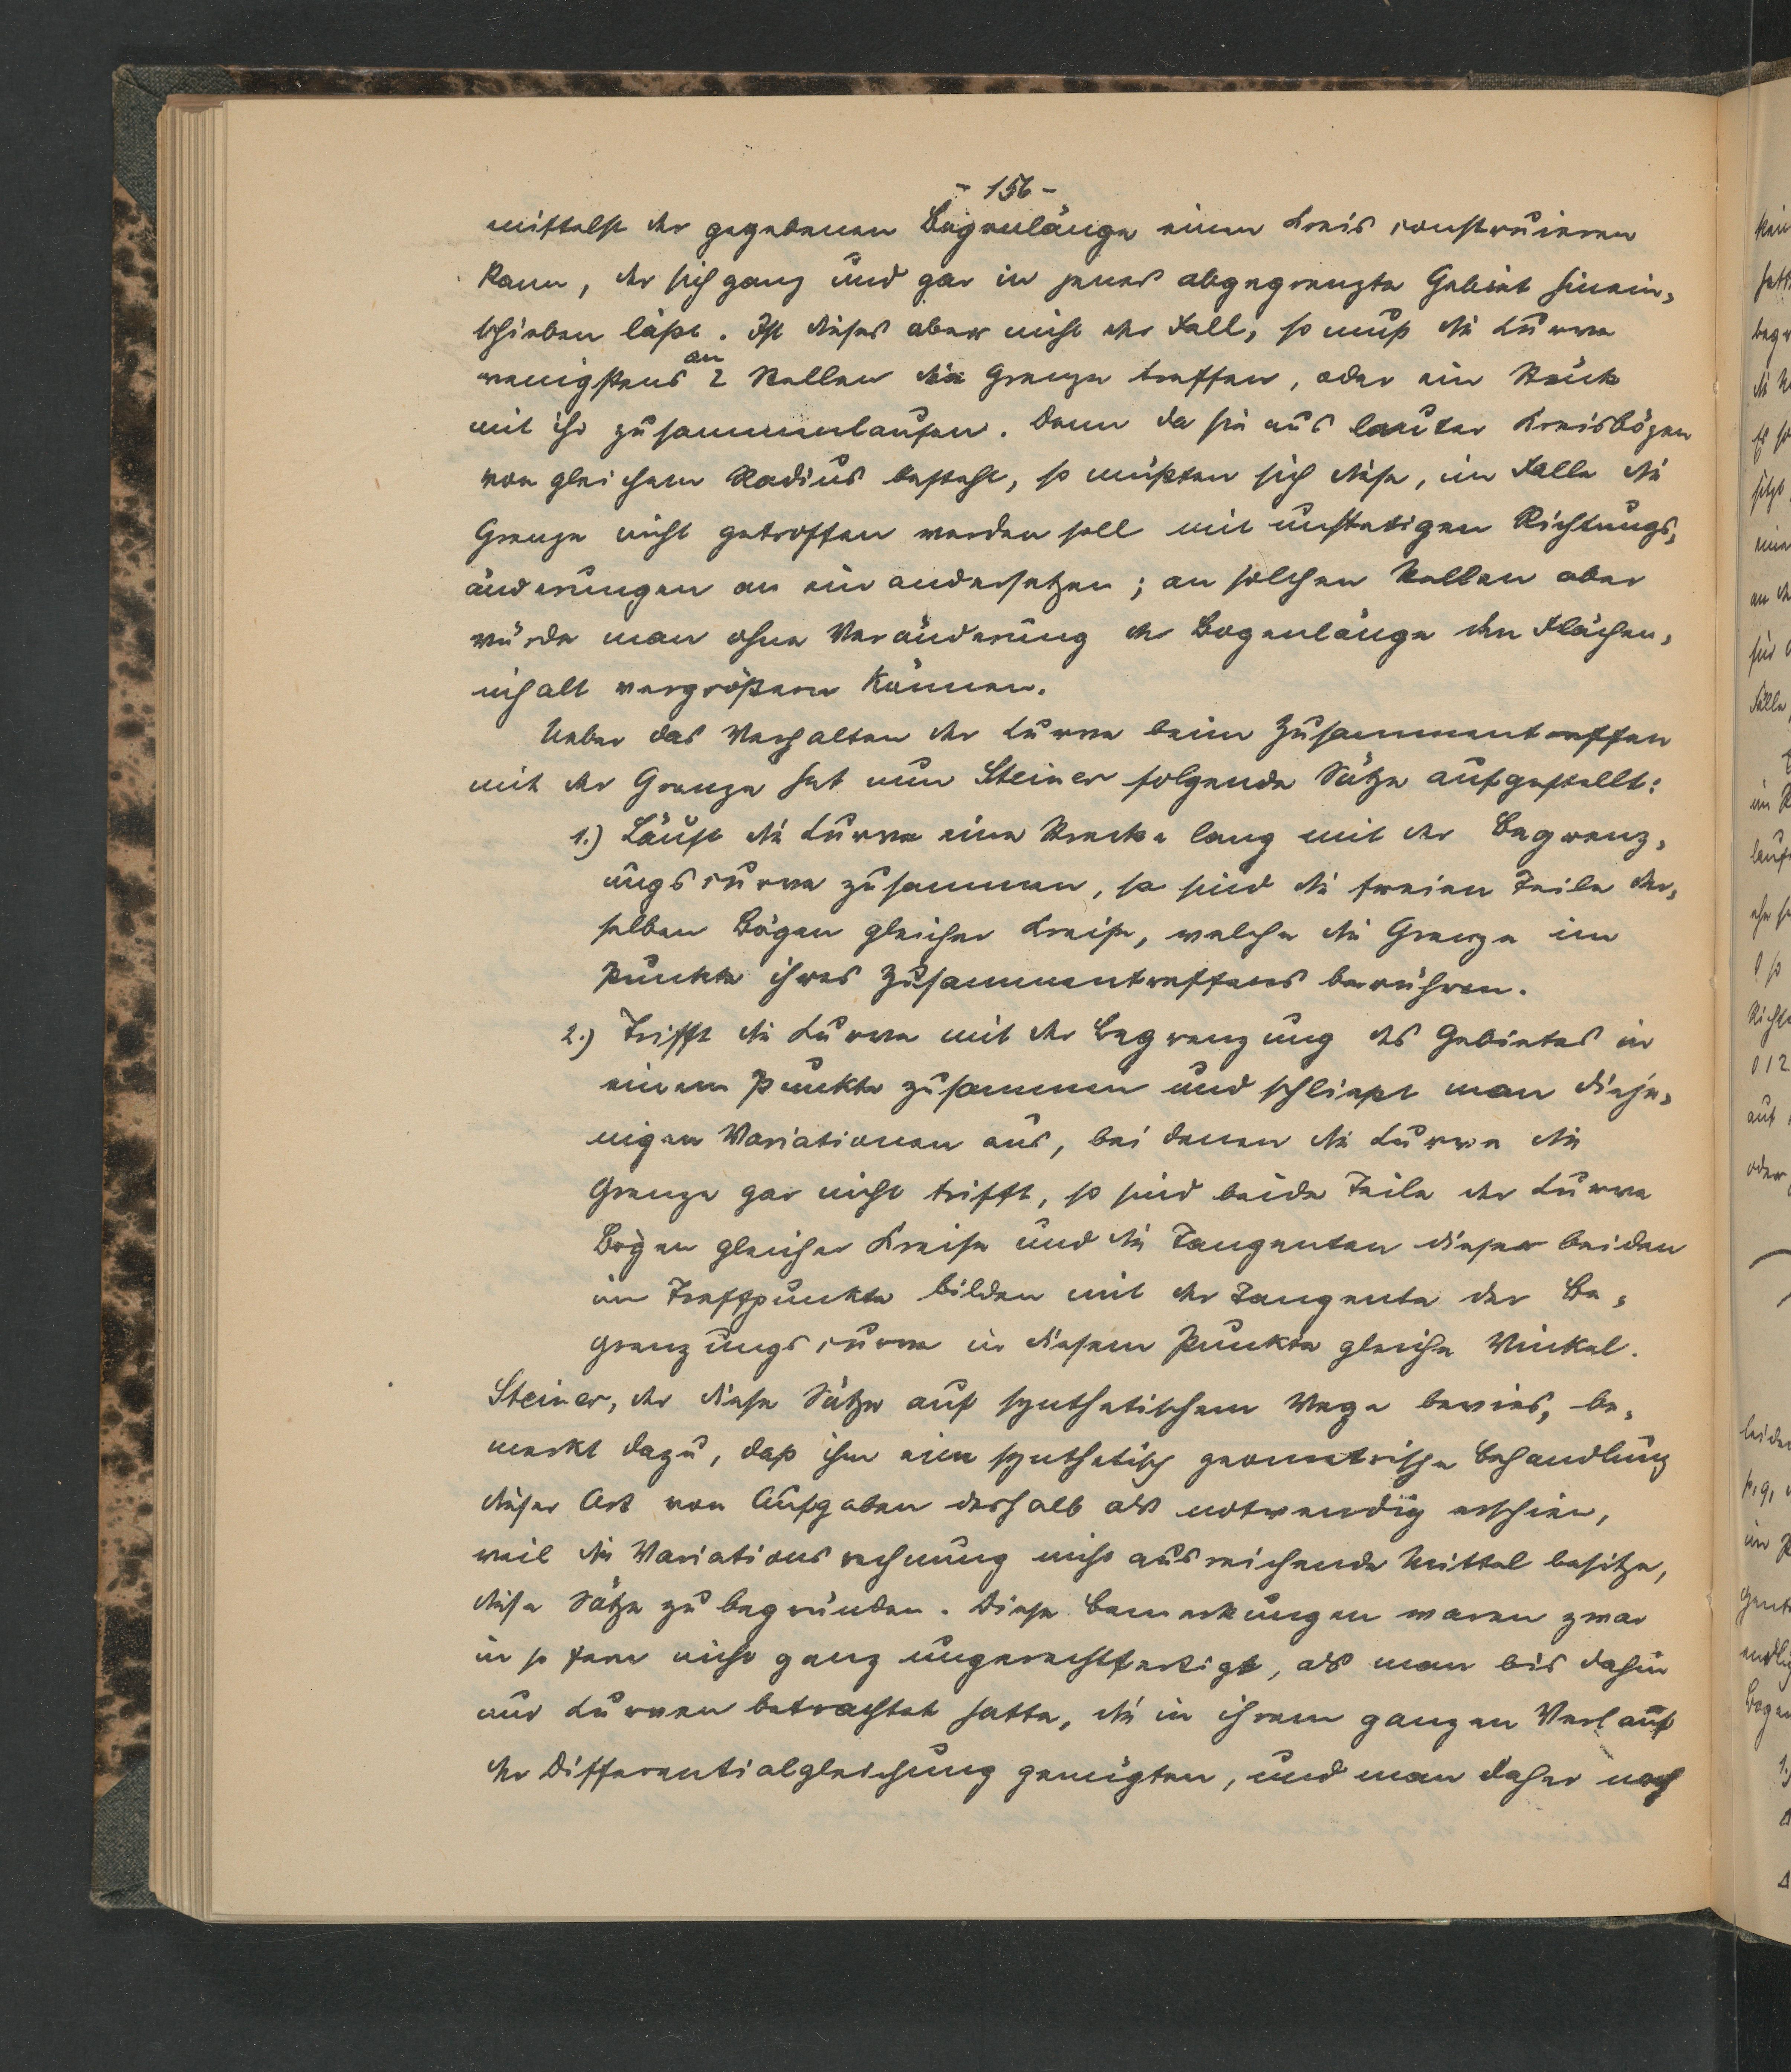 - 156 -
mittelst der gegebenen Bogenlänge einen Kreis construieren
kann, der sich ganz und gar in jenes abgegrenzte Gebiet hinein-
schieben läßt. Ist dieses aber nicht der Fall, so muß die Curve
wenigstens an 2 Stellen die Grenze treffen, oder ein Stück
mit ihr zusammenlaufen. Denn da sie aus lauter Kreisbögen
von gleichem Radius besteht, so müßten sich diese, im Falle die
Grenze nicht getroffen werden soll mit unstetigen Richtungs-
änderungen an einandersetzen; an solchen Stellen aber
würde man ohne Veränderung der Bogenlänge den Flächen-
inhalt vergrößern können.
Ueber das Verhalten der Curve beim Zusammentreffen
mit der Grenze hat nun Steiner folgende Sätze aufgestellt:
1.) Läuft die Curve eine Strecke lang mit der Begrenz-
ungscurve zusammen, so sind die freien Teile der-
selben Bögen gleicher Kreise, welche die Grenze im
Punkte ihres Zusammentreffens berühren.
2.) Trifft die Curve mit der Begrenzung des Gebietes in
einem Punkte zusammen und schließt man dieje-
nigen Variationen aus, bei denen die Curve die
Grenze gar nicht trifft, so sind beide Teile der Curve
Bögen gleicher Kreise und die Tangenten dieser beiden
im Treffpunkte bilden mit der Tangente der Be-
grenzungscurve in diesem Punkte gleiche Winkel.
Steiner, der diese Sätze auf synthetischem Wege bewies, be-
merkt dazu, daß ihm eine synthetisch geometrische Behandlung
dieser Art von Aufgaben deshalb als notwendig erschien,
weil die Variationsrechnung nicht ausreichende Mittel besitze,
diese Sätze zu begründen. Diese Bemerkungen waren zwar
in so fern nicht ganz ungerechtfertigt, als man bis dahin
nur Curven betrachtet hatte, die in ihrem ganzen Verlauf
der Differentialgleichung genügten, und man daher noch